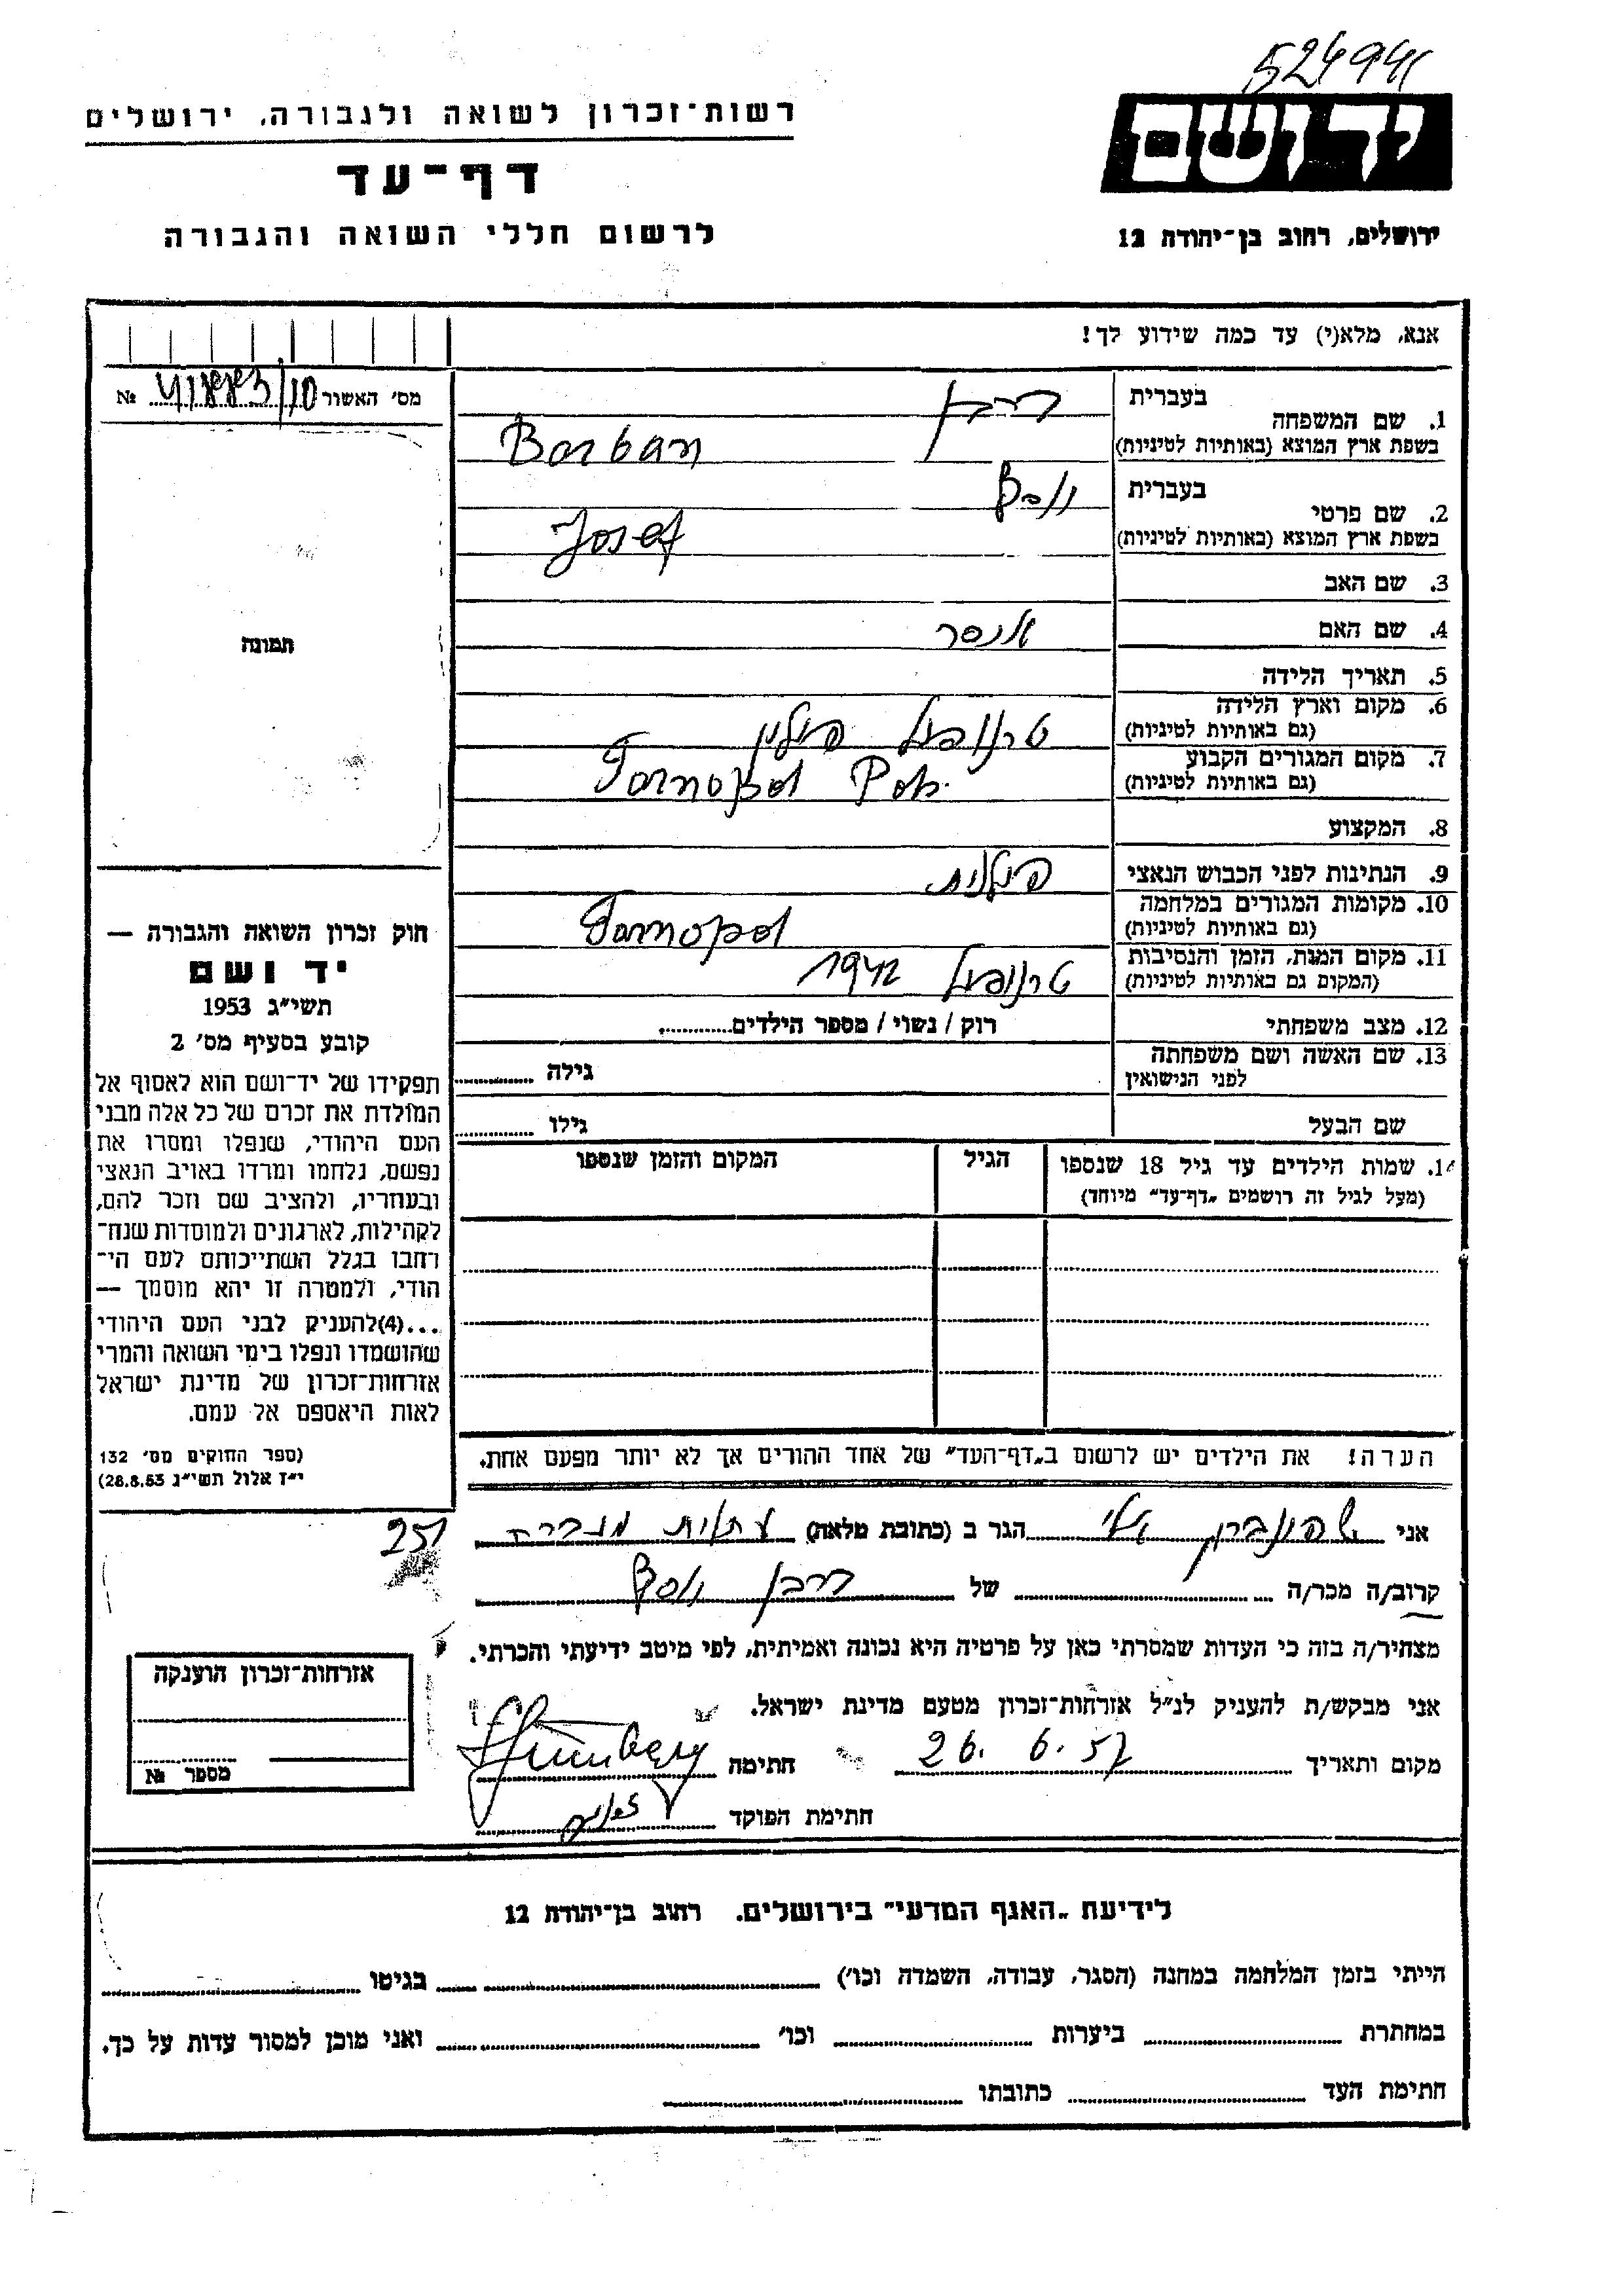 524941
רשות־זכרון לשואה ולגבורה, ירושלים
ידושם
דף־עד
לרשום חללי השואה והגבורה
ירושלים, רחוב בן־יהודה 12
אנא, מלא(י) עד כמה שידוע לך!
מס׳ האשור №
1. שם המשפחה בעברית
בשפת ארץ המוצא (באותיות לטיניות) Barban
2. שם פרטי בעברית
בשפת ארץ המוצא (באותיות לטיניות) Josef
3. שם האב
4. שם האם
5. תאריך הלידה
6. מקום וארץ הלידה טרנופול פולין
(גם באותיות לטיניות)
7. מקום המגורים הקבוע Tarnopol Pol.
(גם באותיות לטיניות)
8. המקצוע
9. הנתינות לפני הכבוש הנאצי פולנית
10. מקומות המגורים במלחמה Tarnopol
(גם באותיות לטיניות)
11. מקום המות, הזמן והנסיבות טרנופול 1942
(המקום גם באותיות לטיניות)
12. מצב משפחתי רוק / נשוי / מספר הילדים
13. שם האשה ושם משפחתה גילה
לפני הנישואין
שם הבעל גילו
14. שמות הילדים עד גיל 18 שנספו הגיל המקום והזמן שנספו
(מעל לגיל זה רושמים „דף־עד״ מיוחד)
הערה! את הילדים יש לרשום ב„דף־העד״ של אחד ההורים אך לא יותר מפעם אחת.
תמונה
חוק זכרון השואה והגבורה —
יד ושם
תשי״ג 1953
קובע בסעיף מס׳ 2
תפקידו של יד־ושם הוא לאסוף אל
המולדת את זכרם של כל אלה מבני
העם היהודי, שנפלו ומסרו את
נפשם, נלחמו ומרדו באויב הנאצי
ובעוזריו, ולהציב שם וזכר להם,
לקהילות, לארגונים ולמוסדות שנח־
רחבו בגלל השתייכותם לעם הי־
הודי, ולמטרה זו יהא מוסמך —
...(4)להעניק לבני העם היהודי
שהושמדו ונפלו בימי השואה והמרי
אזרחות־זכרון של מדינת ישראל
לאות היאספם אל עמם.
(ספר החוקים מס׳ 132
י״ז אלול תשי״ג 28.8.53)
אני הגר ב (כתובת מלאה) עתלית מעברה 251
קרוב/ה מכר/ה של דרבן יוסף
מצהיר/ה בזה כי העדות שמסרתי כאן על פרטיה היא נכונה ואמיתית, לפי מיטב ידיעתי והכרתי.
אני מבקש/ת להעניק לנ״ל אזרחות־זכרון מטעם מדינת ישראל.
מקום ותאריך 26. 6. 57 חתימה
חתימת הפוקד
אזרחות־זכרון הוענקה
מספר №
לידיעת „האגף המדעי״ בירושלים. רחוב בן־יהודה 12
הייתי בזמן המלחמה במחנה (הסגר, עבודה, השמדה וכו׳) בגיטו
במחתרת ביערות וכו׳ ואני מוכן למסור עדות על כך.
חתימת העד כתובתו